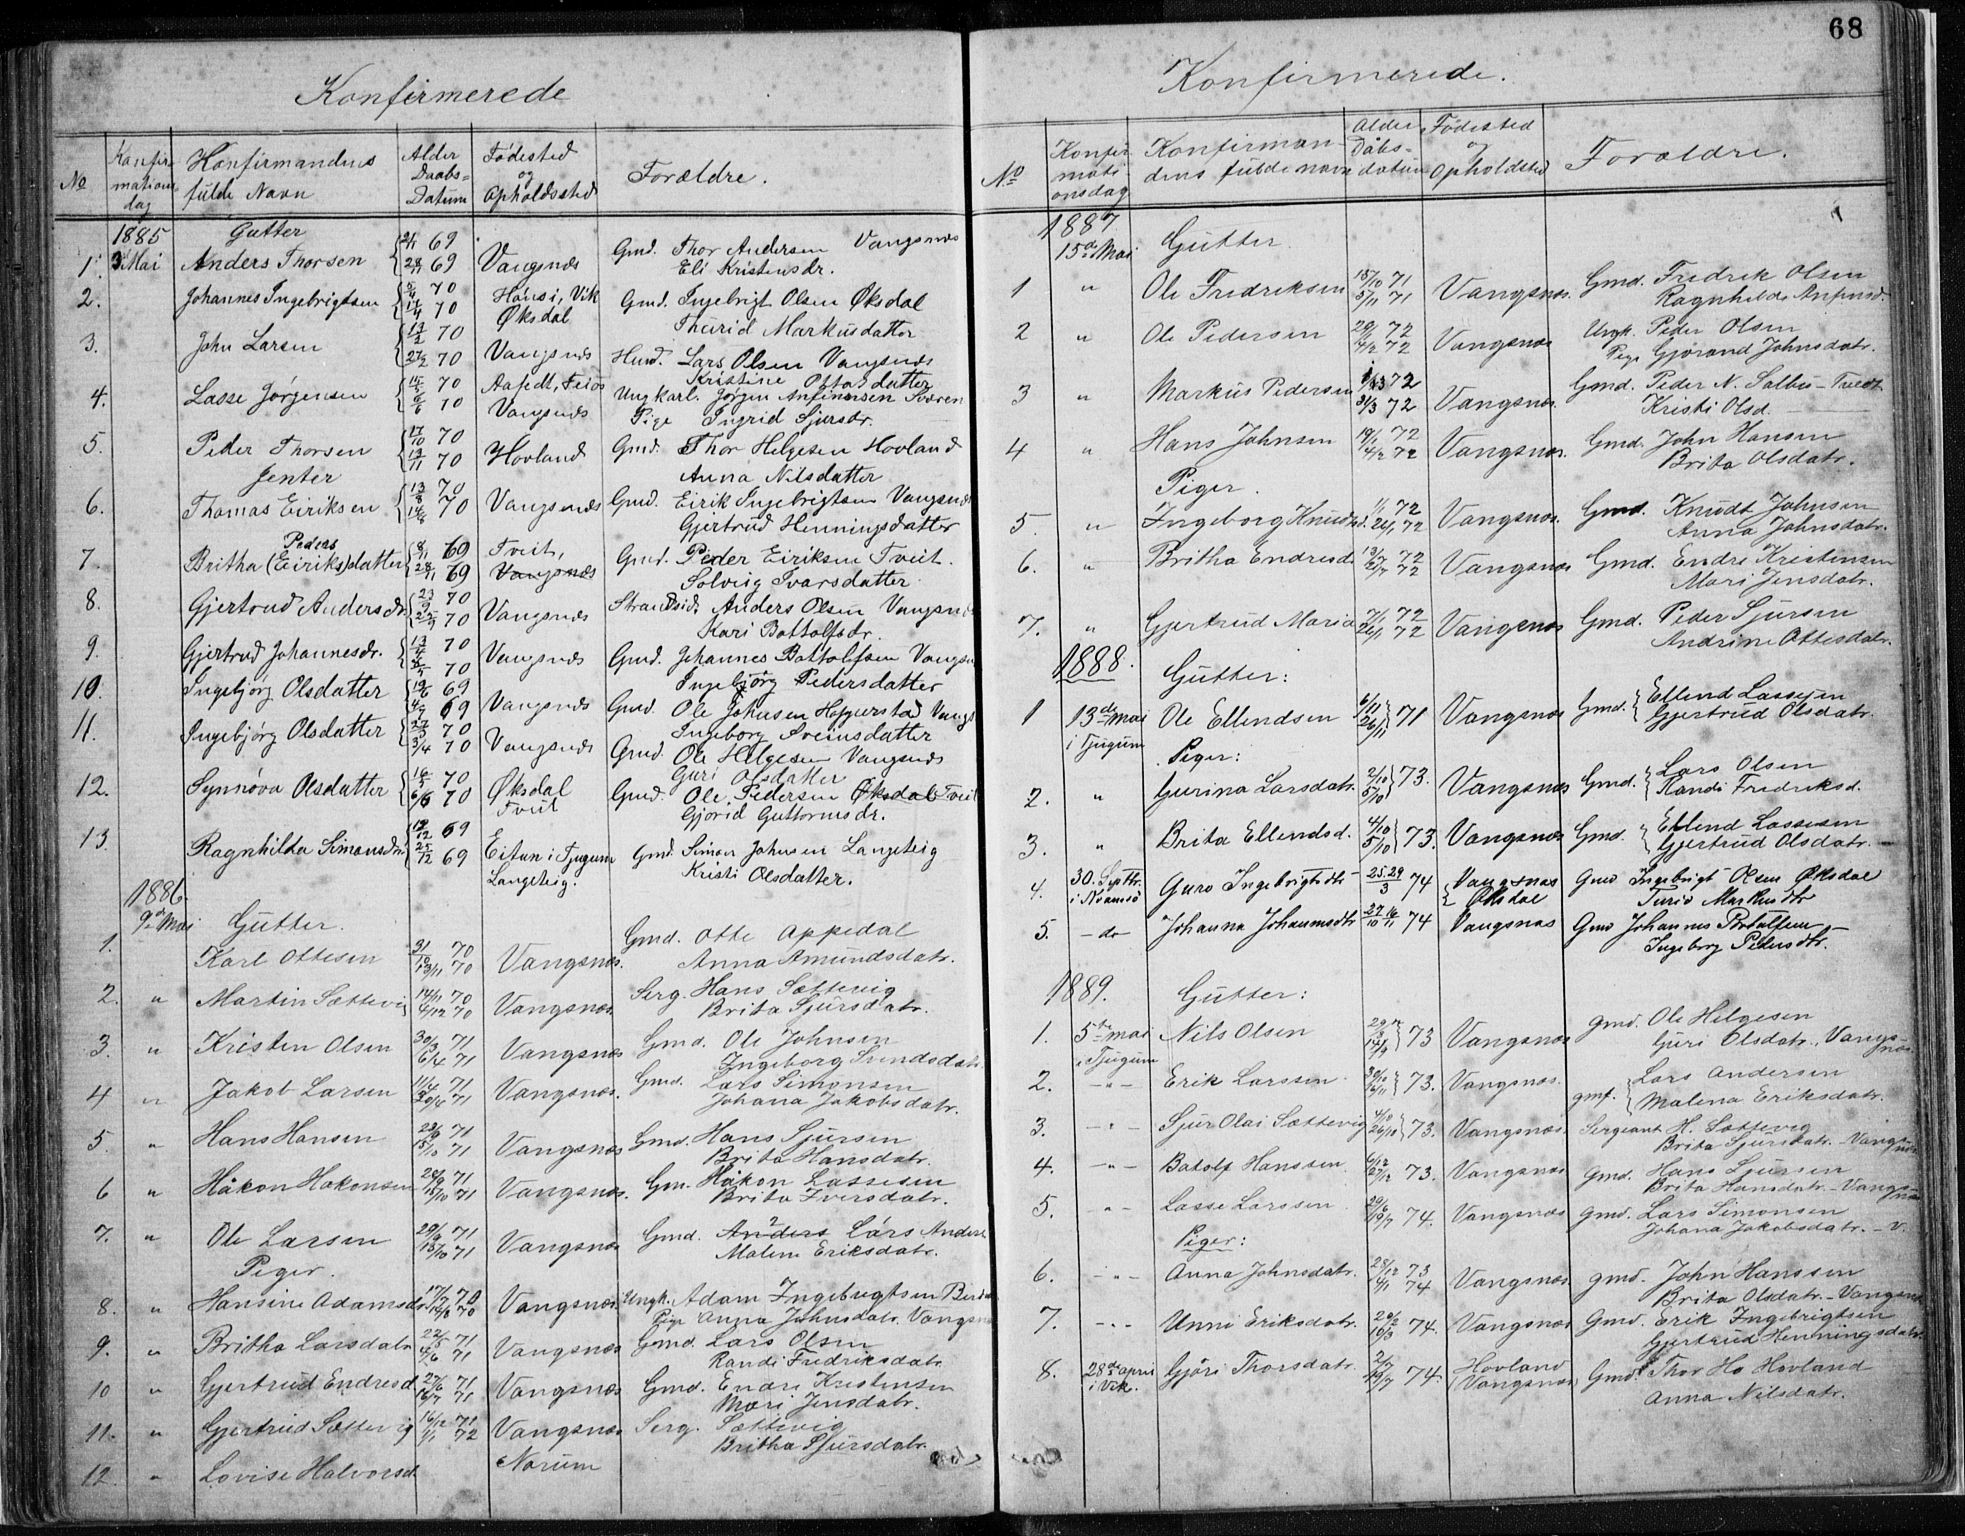 68
Konfirmerede
No Konfirmations dag Konfirmandens fulde Navn Alder Daabs-Datum Fødested og Opholdssted Forældre.
1885 Gutter
1. 3 Mai Anders Thorsen 2/11 69 28/11 69 Vangsnæs Gmd. Thor Andersen Vangsnæs
Eli Kristensdr.
2. Johannes Ingebrigtsen 70 17/4 70 Hønsi, Vik Øksdal Gmd. Ingebrigt Olsen Øksdal
Thurid Markusdatter
3. John Larsen 13/2 70 27/2 70 Vangsnæs Husd. Lars Olsen Vangsnæs
Kristine Ottosdatter
4. Lasse Jørgensen 15/5 70 6/6 70 Aafedt, Feios Vangsnæs Ungkarl. Jørgen Anfinnsen Sværen
Pige Ingrid Sjursdr.
5. Peder Thorsen 17/10 70 13/11 70 Hovland Gmd. Thor Helgesen Hovland
Anna Nilsdatter
Jenter
6. Thomas Eiriksen 13/8 70 14/8 70 Vangsnæs Gmd. Eirik Ingebrigtsen Vangsnæs
Gjertrud Henningsdatter
7 Britha (Eiriks)datter Peders 8/11 69 28/11 69 Tveit, Vangsnæs Gmd. Peder Eiriksen Tveit.
Solveig Ivarsdatter
8. Gjertrud Andersdr. 23/9 70 25/9 70 Vangsnæs Strandsid. Anders Olsen Vangsnæs
Kari Bottolfsdr.
9. Gjertrud Johannesdr. 70 70 Vangsnæs Gmd. Johannes Bottolfsen Vangsn
Ingebjørg Pedersdatter
10. Ingebjørg Olsdatter 19/6 69 4/7 69 Vangsnæs Gmd. Ole Johnsen Hopperstad Vangs
Ingeborg Sveinsdatter
11. Ingebjørg Olsdatter 27/3 70 3/4 70 Vangsnæs Gmd. Ole Helgesen Vangsnæs
Guri Olsdatter
12. Synnøva Olsdatter 16/5 70 6/6 70 Øksdal Tveit Gmd. Ole Pedersen Øksdal Tveit
Gjørid Guttormsdr.
13. Ragnhilda Simonsdr. 12/12 69 25/12 69 Eitun i Tjugum Langeteig. Gmd. Simon Johnsen Langeteig
Kristi Olsdatter.
1886
9de Mai Gutter.
1. Karl Ottesen 31/10 70 13/11 70 Vangsnæs. Gmd. Otte Appedal
Anna Amundsdatr.
2. " Martin Sættevig 14/11 70 4/12 70 Vangsnæs. Serg. Hans Sættevig
Brita Sjursdatr.
3. " Kristen Olsen 30/3 71 6/4 71 Vangsnæs Gmd. Ole Johnsen
Ingeborg Svendsdatr.
4 " Jakob Larsen 11/4 71 30/4 71 Vangsnæs. Gmd. Lars Simonsen
Johana Jakobsdatr.
5 " Hans Hansen 22/9 71 15/10 71 Vangsnæs Gmd. Hans Sjursen
Brita Hansdatr.
6 " Håkon Hakonsen 20/9 71 15/10 71 Vangsnæs. Gm. Håkon Lassesen
Brita Iversdatr.
7. " Ole Larsen 29/9 71 15/10 71 Vangsnæs Gmd. Anders Lars Anders
Malene Eriksdatr.
Piger.
8. " Hansine Adamsdr 17/7 70 14/8 70 Vangsnæs. Ungk. Adam Ingebrigtsen
Pige Anna Johnsdatr. Vangsn
9. " Britha Larsdatr 22/5 71 4/6 71 Vangsnæs Gmd. Lars Olsen
Randi Fredriksdatr
10 " Gjertrud Endresd 27/6 71 16/7 71 Vangsnæs Gmd. Endre Kristensen
Mari Jensdatr.
11. " Gjertrud Sættevig 16/12 71 1/1 72 Vangsnæs Serg. Sættevig
Britha Sjursdatr.
12. " Lovise Halvorsd. Norum
Konfirmerede.
No Konfirmationsdag Konfirmandens fulde navn Alder Dåbsdatum Fødested og Opholdsted Forældre.
1887
15de Mai Gutter.
1 " Ole Fredriksen 15/10 71 5/11 71 Vangsnæs. Gmd. Fredrik Olsen
Ragnhilde Anfinsd.
2 " Ole Pedersen 29/1 72 4/2 72 Vangsnæs Ungk. Peder Olsen
Pige Gjørond Johnsdatr.
3 " Markus Pedersen 72 31/3 72 Vangsnæs. Gmd. Peder N. Salbu - Tvedt
Kristi Olsd.
4 " Hans Johnsen 19/1 72 4/2 72 Vangsnæs. Gmd. John Hansen
Brita Olsdatr.
Piger.
5. " Ingeborg Knudsd. 1/1 72 26/1 72 Vangsnæs. Gmd. Knudt Johnsen
Anna Johnsdatr.
6. " Britha Endresd 13/7 72 21/7 72 Vangsnæs Gmd. Endre Kristensen
Mari Jensdatr.
7. " Gjertrud Maria 7/1 72 26/1 72 Vangsnæs Gmd. Peder Sjursen
Andrine Ottesdatr.
1888. Gutter:
1 13de Mai i Tjugum Ole Ellendsen 6/11 26/11 71 Vangsnæs Gmd. Ellend Lassesen
Gjertrud Olsdatr.
Piger:
2. " Gurina Larsdatr. 2/10 5/10 73. Vangsnæs Gmd. Lars Olsen
Randi Fredriksd.
3. " Brita Ellendsd. 4/10 5/10 73. Vangsnæs Gmd. Ellend Lassesen
Gjertrud Olsdatr.
4. 30. Septbr. i Kvamsø Guro Ingebrigtsdtr 25.29/3 74 Vangsnæs Øksdal Gmd Ingebrigt Olsen Øksdal
Turid Markusdtr
5. - do - Johanna Johannesdtr 27/10 16/11 74 Vangsnæs Gmd Johannes Botolfsen
Ingeborg Pedersdtr.
1889. Gutter:
1. 5te mai i Tjugum Nils Olsen 73 Vangsnæs gmd. Ole Helgesen
Guri Olsdatr., Vangsnæs
2. - " - Erik Larssen 30/10 16/11 73. Vangsnæs. gmf. Lars Andersen
Malena Eriksdatr.
3. - " - Sjur Olai Sættevig 4/10 26/10 73. Vangsnæs. Sergeant H. Sættevig
Brita Sjursdatr. - Vangsnæs
4. - " - Botolf Hanssen 6/12 27/12 73. Vangsnæs gmd. Hans Sjursen
Brita Hansdatr. - Vangsnæs
5. - " - Lasse Larssen 29/6 19/7 74. Vangsnæs gmd. Lars Simonsen
Johana Jakobsdatr. - V.
Piger:
6. - " - Anna Johnsdatr. 28/12 73 14/1 74 Vangsnæs. gmd. John Hanssen
Brita Olsdatr. - Vangsnæs
7. - " - Unni Eriksdatr. 20/2 10/3 74. Vangsnæs Gmd. Erik Ingebrigtsen
Gjertrud Henningsdatr.
8. 28de april i Vik. Gjøri Thorsdatr. 2/7 19/7 74. Hovland (Vangsnæs) Gmd. Thor He Hovland
Anna Nilsdatr.